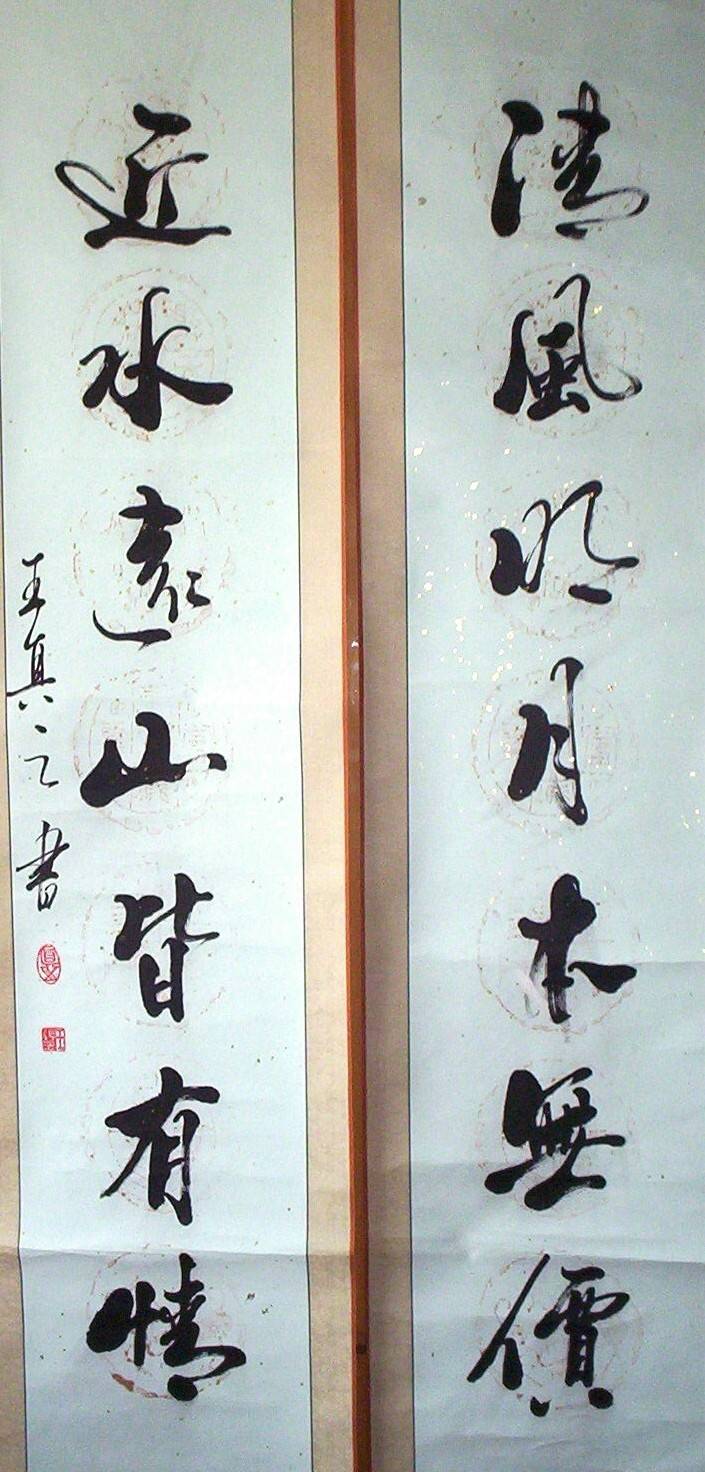 清風明月本無價
近水遠山皆有情
王真之書